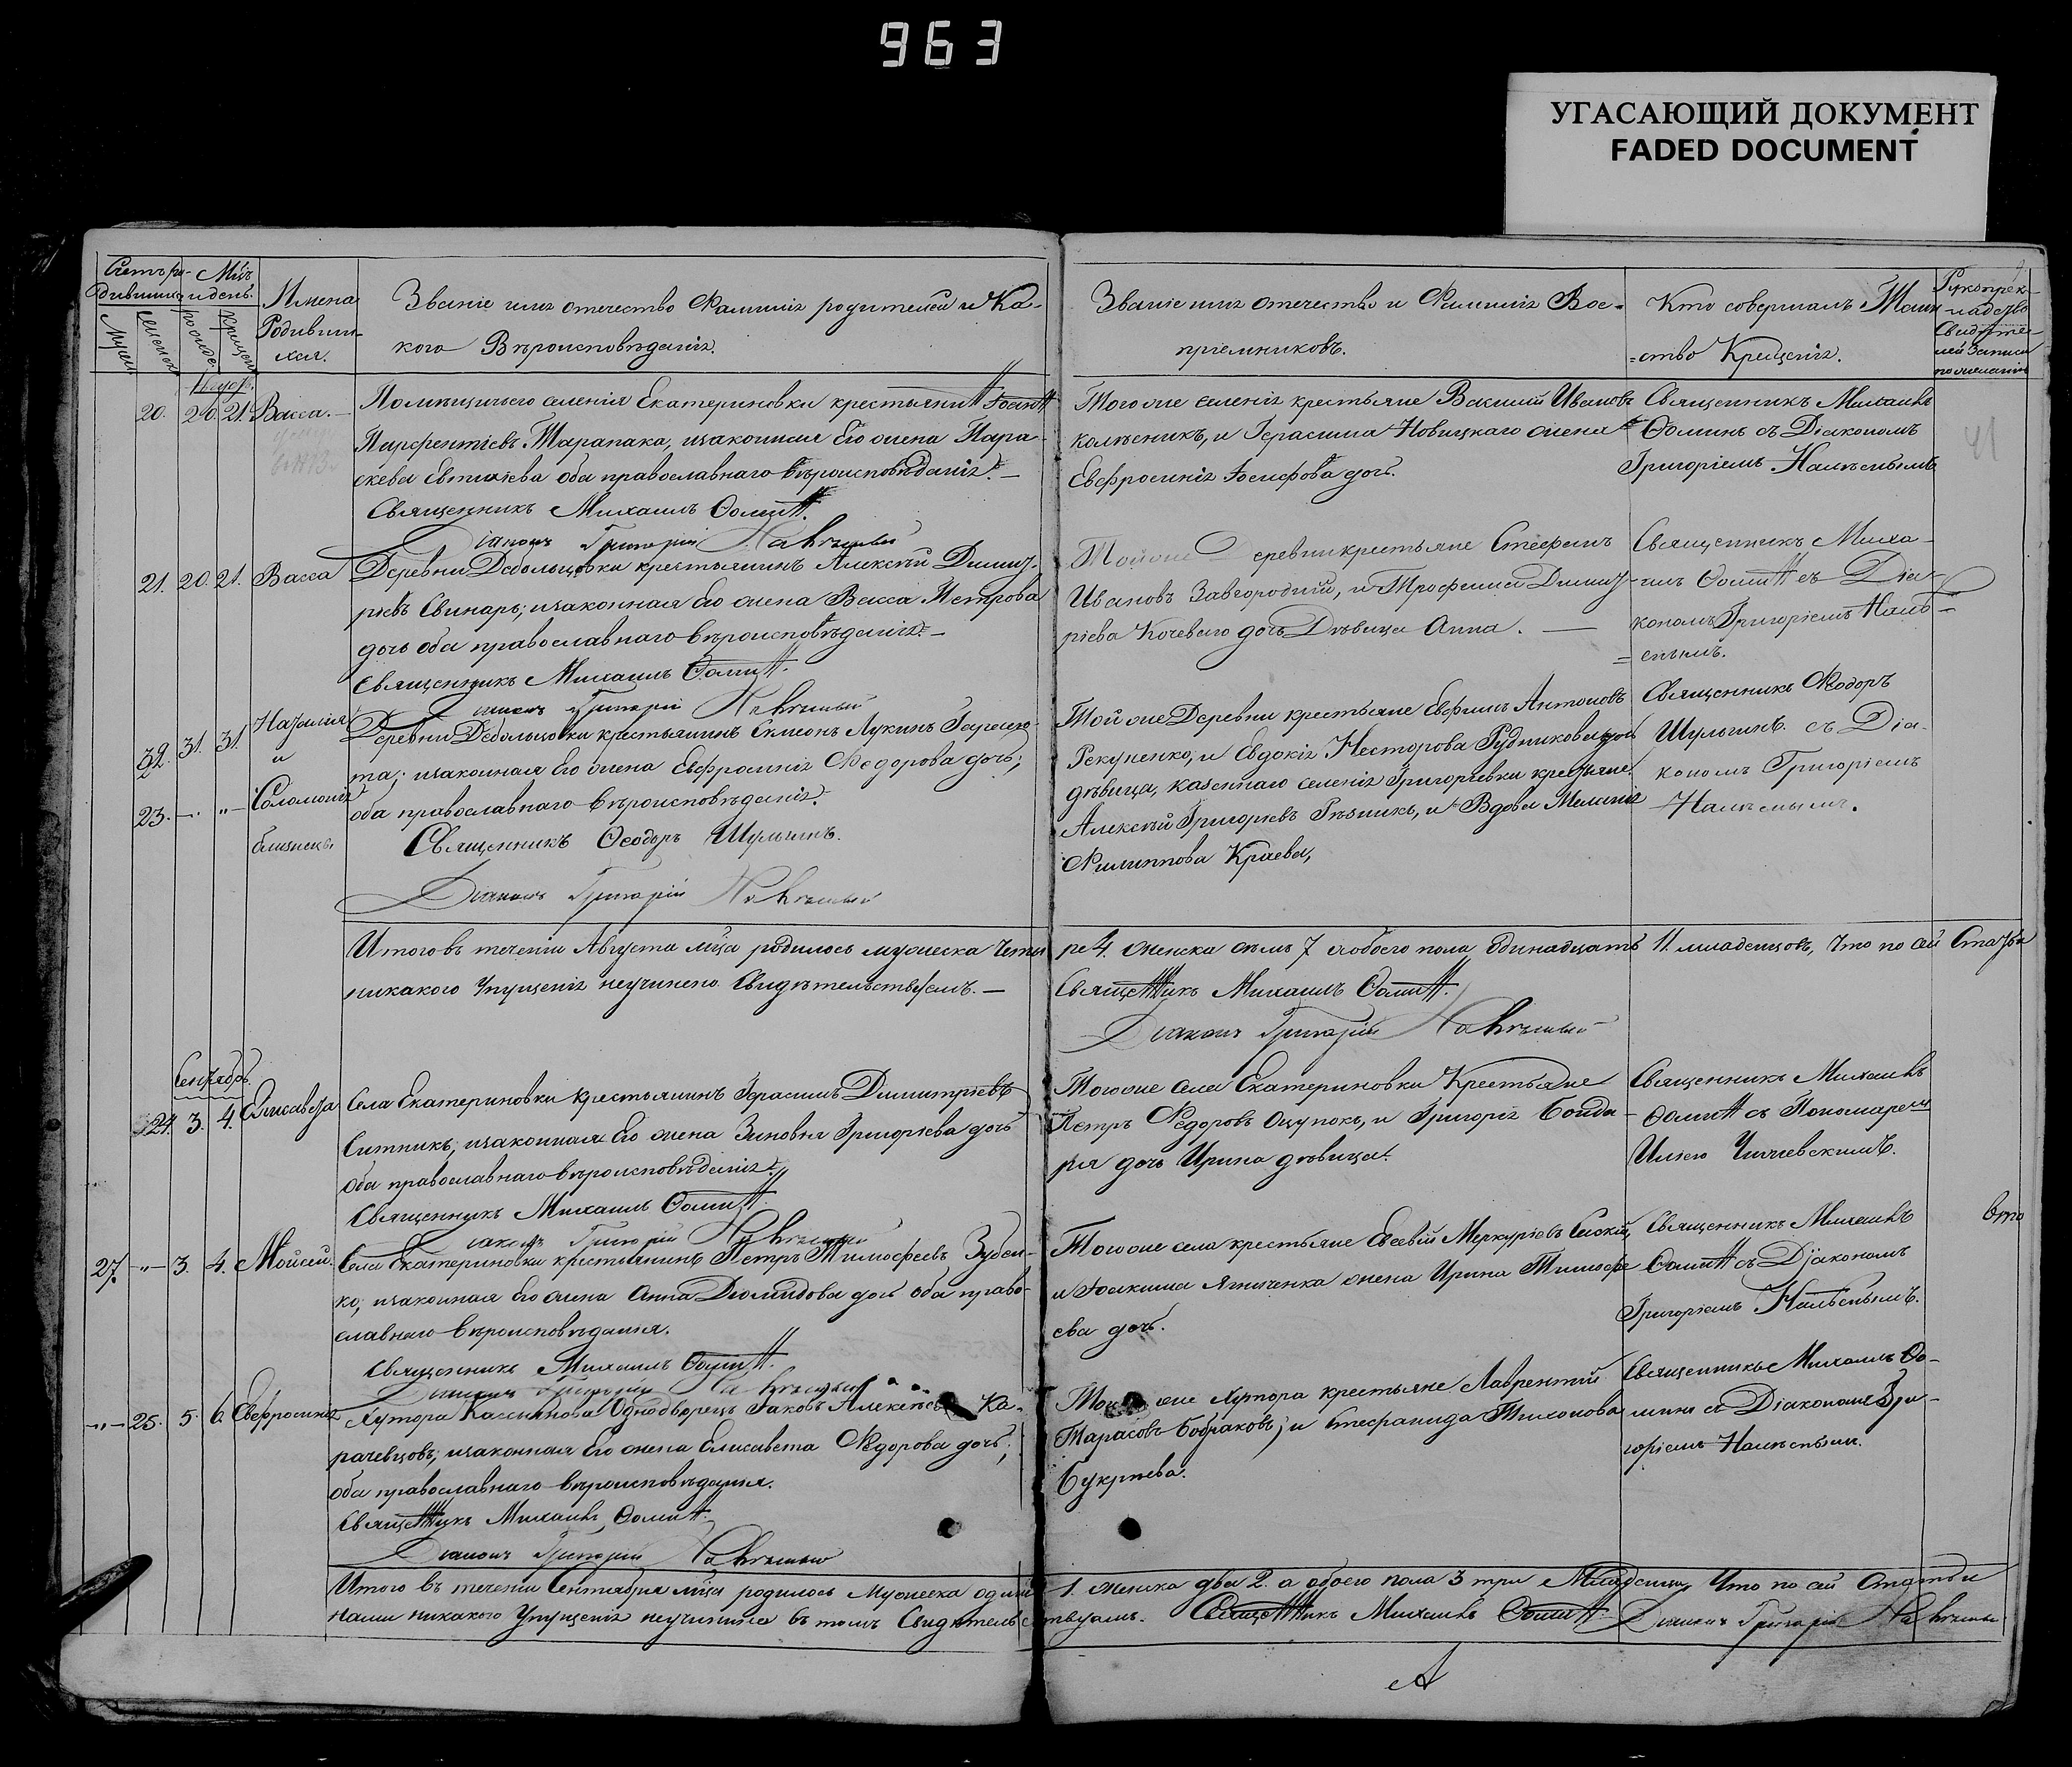 963
УГАСАЮЩИЙ ДОКУМЕНТ
FADED DOCUMENT
Счетъ ро-
дившихся
Мцъ
и день.
Имена
Родивши-
хся.
Званіе имя отечество Фамилія родителей и Ка-
кого Вѣроисповѣданія.
Званіе имя отечество и Фамилія Вос-
пріемниковъ.
Кто совершалъ Таин
=ство Крещенія.
Рукопрек-
ладство
Свидѣте-
лей записи
по желанію
41
Августъ.
20. 20. 21. Васса.
Помѣщичьего селенія Екатериновки крестьянинъ Іоаннъ
Парфентіевъ Тарапака, и законная Его жена Пара-
скева Евтихіева оба православнаго вѣроисповѣданія. —
Священникъ Михаилъ Ѳоминъ.
Діаконъ Григорій
Того же селенія крестьяне Василий Ивановъ
колѣсникъ, и Герасима Новицкаго жена
Евфросинія Іосифова дочь.
Священникъ Михаилъ
Ѳоминъ съ Діакономъ
Григоріемъ
21. 20. 21. Васса
Деревни Дебольцовки крестьянинъ Алексѣй Димит-
ріевъ Свинарь; и законная Его жена Васса Петрова
дочь оба православнаго вѣроисповѣданія. —
Священникъ Михаилъ Ѳоминъ.
Діаконъ Григорій
Той же Деревни крестьяне Стефанъ
Ивановъ Завгородній, и Трофима Димит-
ріева Кочеваго дочь Дѣвица Анна. —
Священникъ Миха-
илъ Ѳоминъ съ Діа-
кономъ Григоріемъ
22. 31. 31. Наталія
и
23. — " — Соломонія
близнецы.
Деревни Дебольцовки крестьянинъ Симеонъ Лукинъ
и законная Его жена Евфросинія Федорова дочь;
оба православнаго вѣроисповѣданія.
Священникъ Ѳеодоръ Шульгинъ.
Діаконъ Григорій
Той же Деревни крестьяне Ефимъ Антоновъ
Рекуненко, и Евдокія Несторова Рудникова
дѣвица, казеннаго селенія Григорьевки крестьяне.
Алексѣй Григорьевъ Рѣзникъ, и Вдова Меланія
Филиппова Краева,
Священникъ Фѣодоръ
Шульгинъ. съ Діа-
кономъ Григоріемъ
Итого въ теченіи Августа мца родилось мужеска четы ре 4. женска семь 7 а обоего пола Одинадцать 11. младенцовъ, что по сей Статьѣ
никакого Упущенія неучинено Свидѣтельствуемъ. — Священникъ Михаилъ Ѳоминъ.
Діаконъ Григорій
Сентябрь
24. 3. 4. Елисавета
Села Екатериновки крестьянинъ Герасимъ Димитріевъ
Ситникъ, и законная Его жена Зиновія Григорьева дочь
Оба православнаго вѣроисповѣданія.
Священникъ Михаилъ Ѳоминъ.
Діаконъ Григорій
Того же села Екатериновки Крестьяне
Петръ Федоровъ Ощупокъ, и Григорія Бонда-
ря дочь Ирина дѣвица.
Священникъ Михаилъ
Ѳоминъ съ Пономаремъ
Иліею
27. — " — 3. 4. Мойсей.
Села Екатериновки крестьянинъ Петръ Тимофеевъ Зубен-
ко, и законная Его жена Анна Діомидова дочь оба право-
славнаго вѣроисповѣданія.
Священникъ Михаилъ Ѳоминъ.
Діаконъ Григорій
Того же села крестьяне Евсевій Меркуріевъ
и Іоакима Ягниченка жена Ирина Тимофе
ева дочь.
Священникъ Михаилъ
Ѳоминъ съ Діакономъ
Григоріемъ
— " — 25. 5. 6. Евфросинія
Хутора Касьянова Однодворецъ Іаковъ Алексѣевъ Ка-
рачевцовъ; и законная Его жена Елисавета Федорова дочь;
оба православнаго вѣроисповѣданія.
Священникъ Михаилъ Ѳоминъ.
Діаконъ Григорій
Того же Хутора крестьяне Лаврентий
Тарасовъ Бобраковъ; и Стефанида Тихонова
Букрѣева.
Священникъ Михаилъ Ѳо-
минъ съ Діакономъ Гри-
горіемъ
Итого въ теченіи Сентября мца родилось Мужеска одинъ 1. женска два 2. а обоего пола 3 три Младенца, Что по сей Статьѣ
нами никакого Упущенія неучинено въ томъ Свидѣтельствуемъ. Священникъ Михаилъ Ѳоминъ Діаконъ Григорій